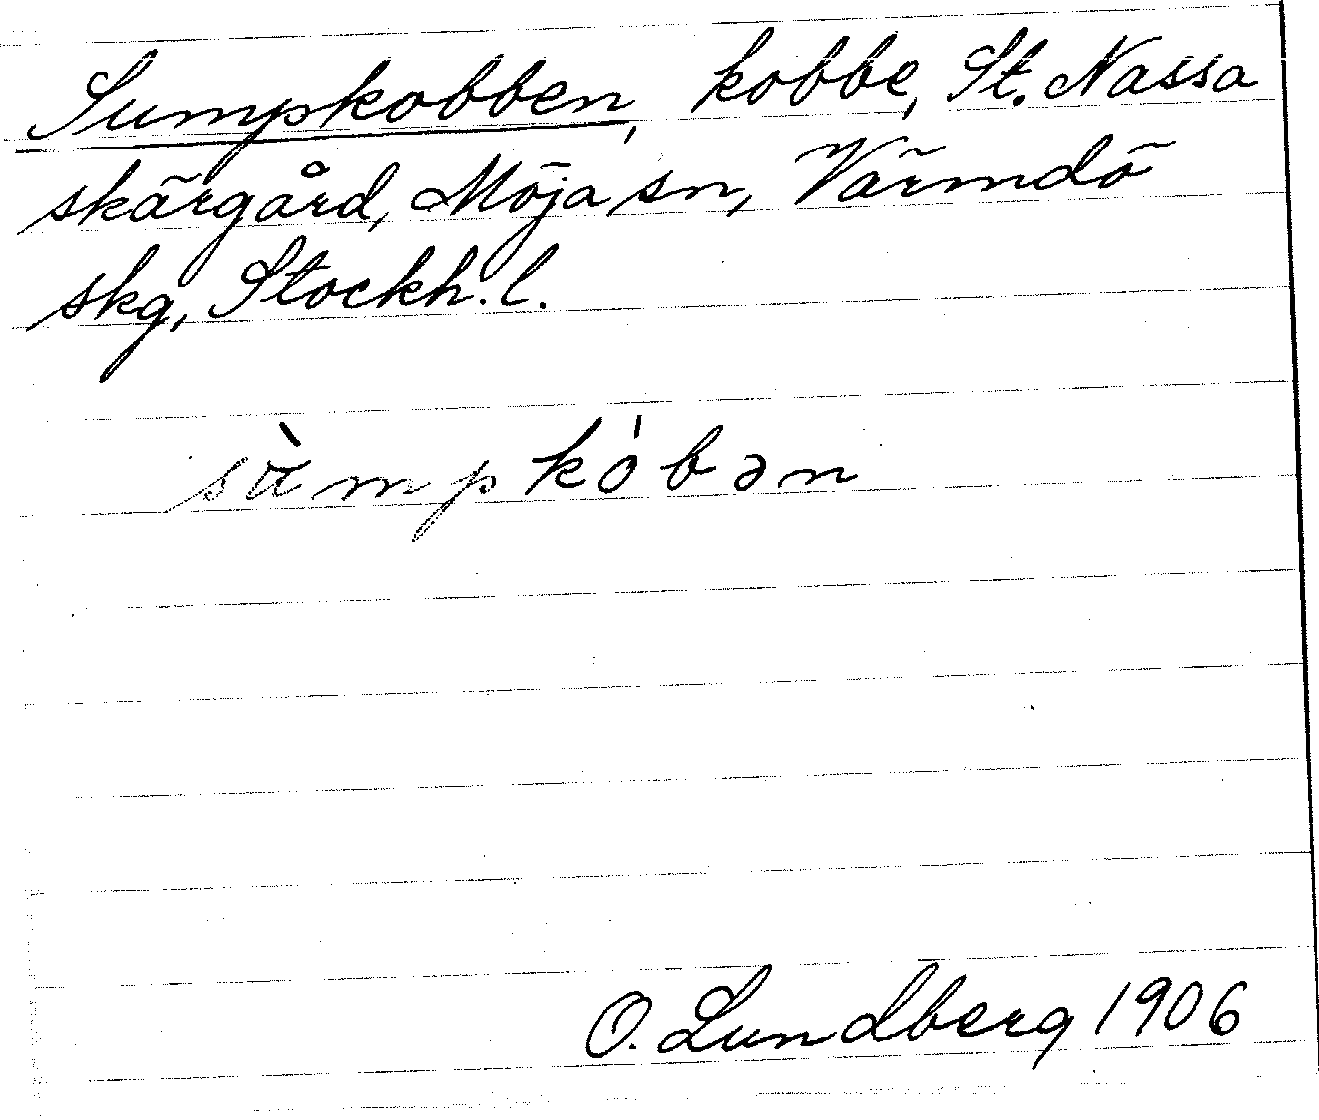 Sumpkobben, kobbe, St. Nassa
skärgård, Möja sn, Värmdö
skg, Stockh. l.
sɑ̀mpkób ən
O. Lundberg 1906